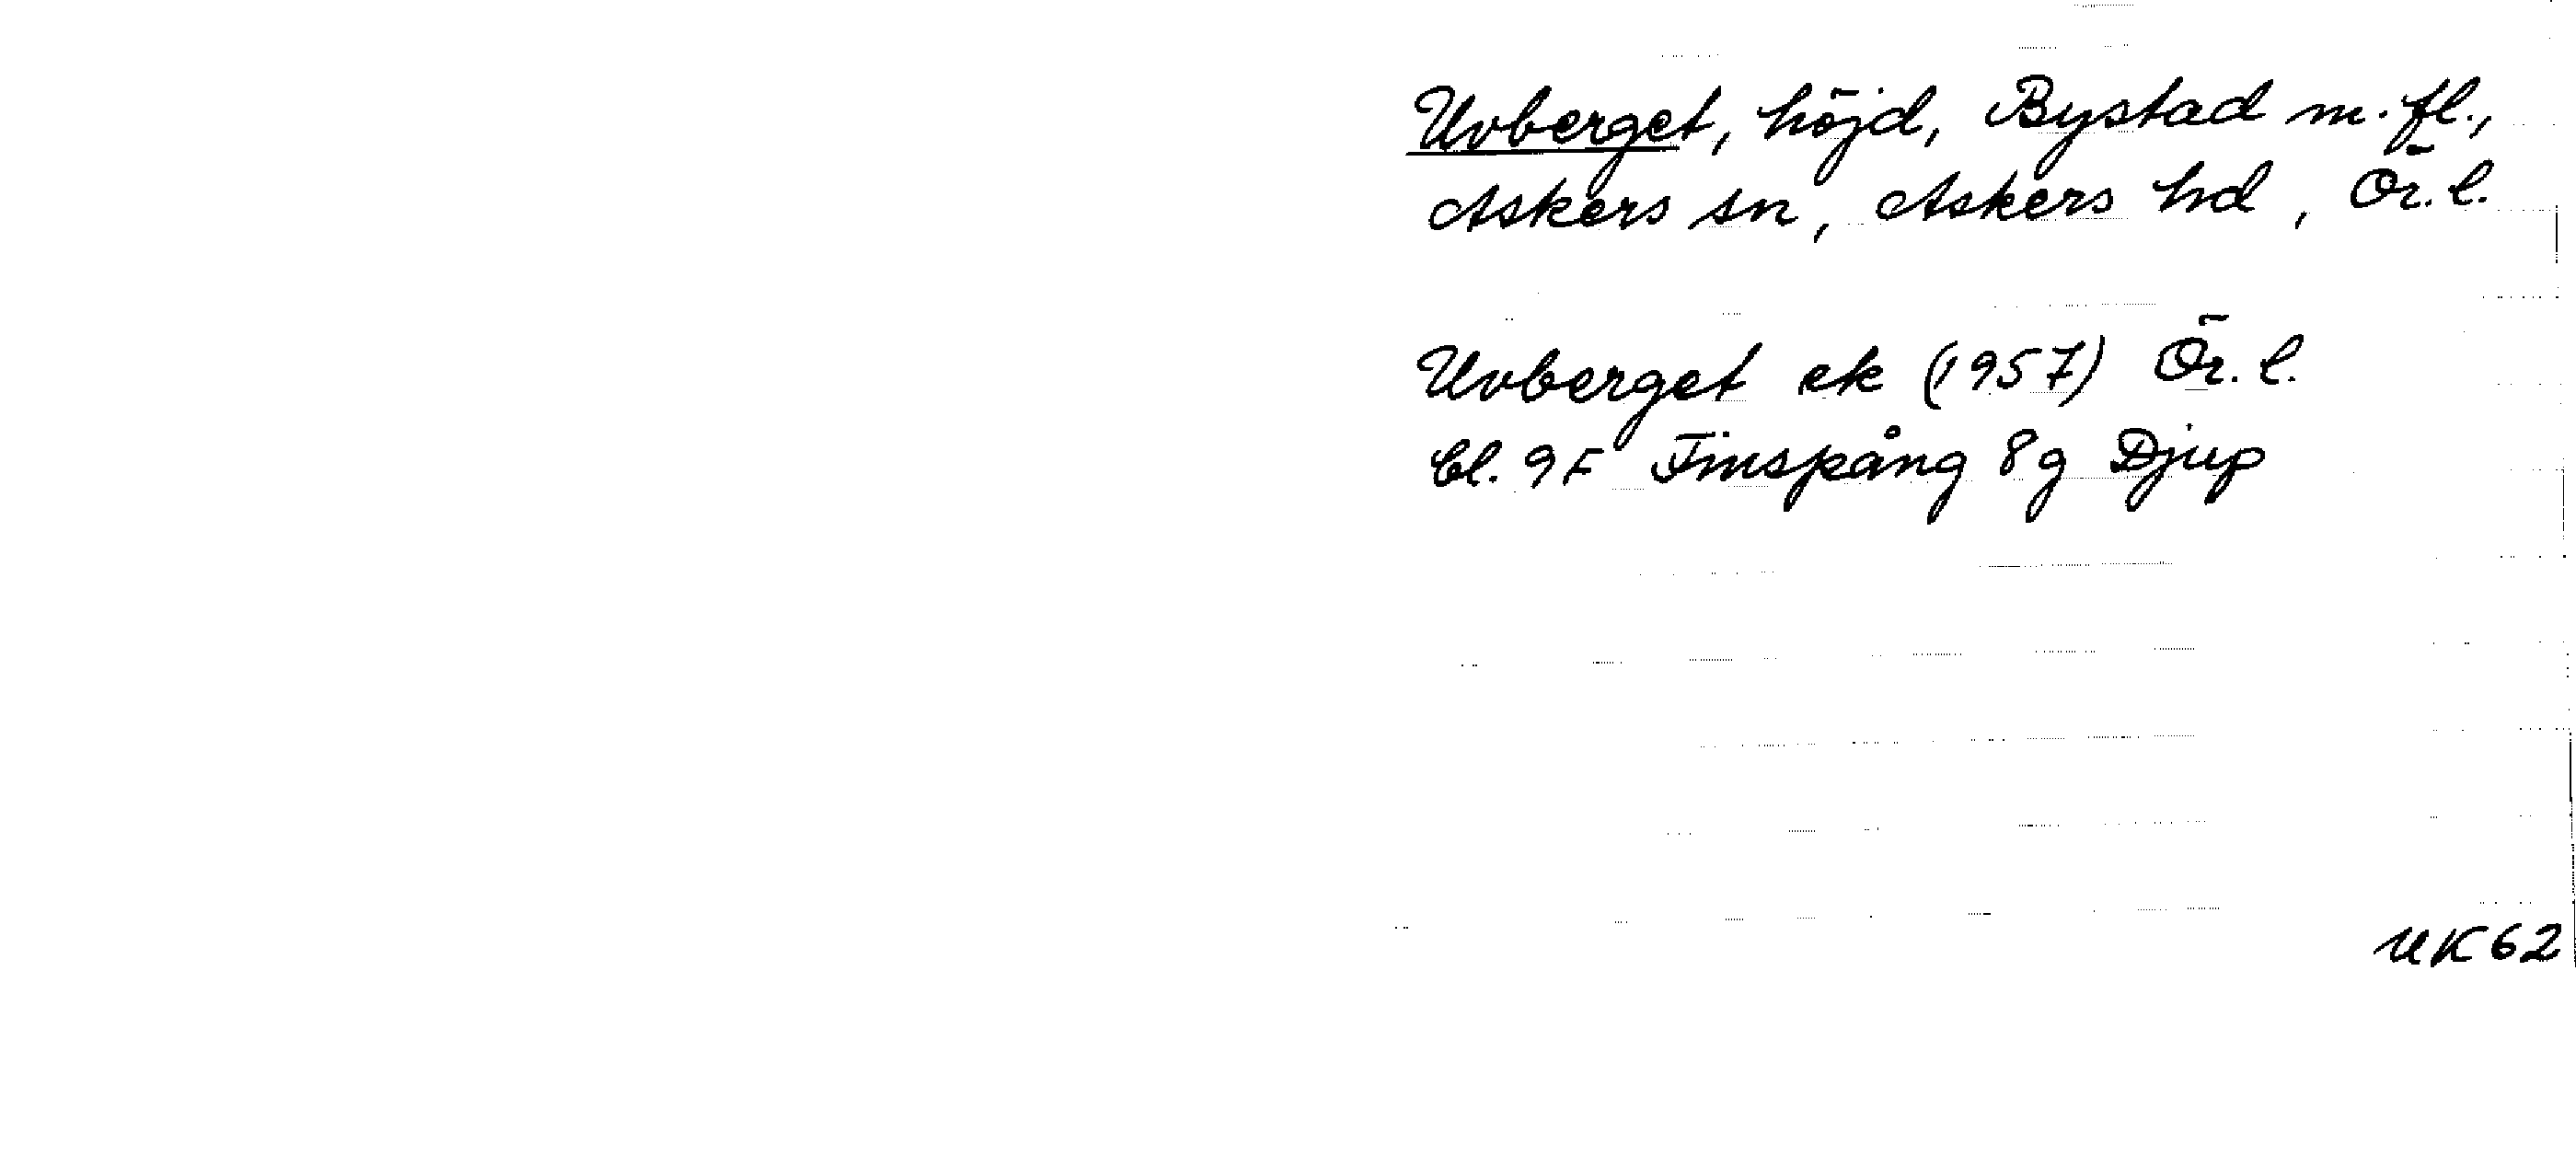 Uvberget, höjd, Bystad m. fl.,
Askers sn, Askers hd, Ör. l.
Uvberget ek (1957) Ör. l.
bl. 9F Finspång 8g Djup
UK 62